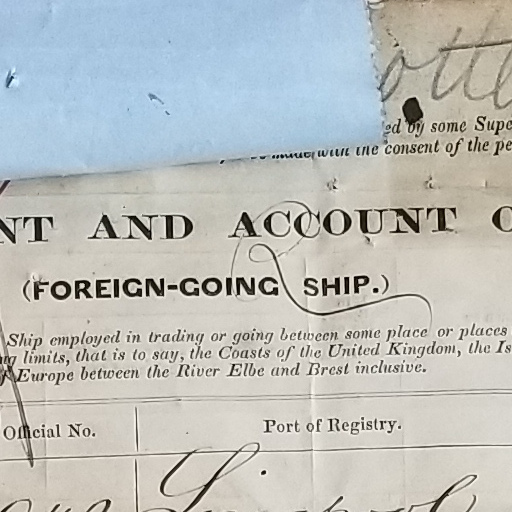 by some Supe
consent of the pe
NT AND ACCOUNT O
(FOREIGN-GOING SHIP.)
Ship employed in trading or going between some place or places
limits, that is to say, the Coasts of the United Kingdom, the Is
Europe between the River Elbe and Brest inclusive.
Official No. Port of Registry.